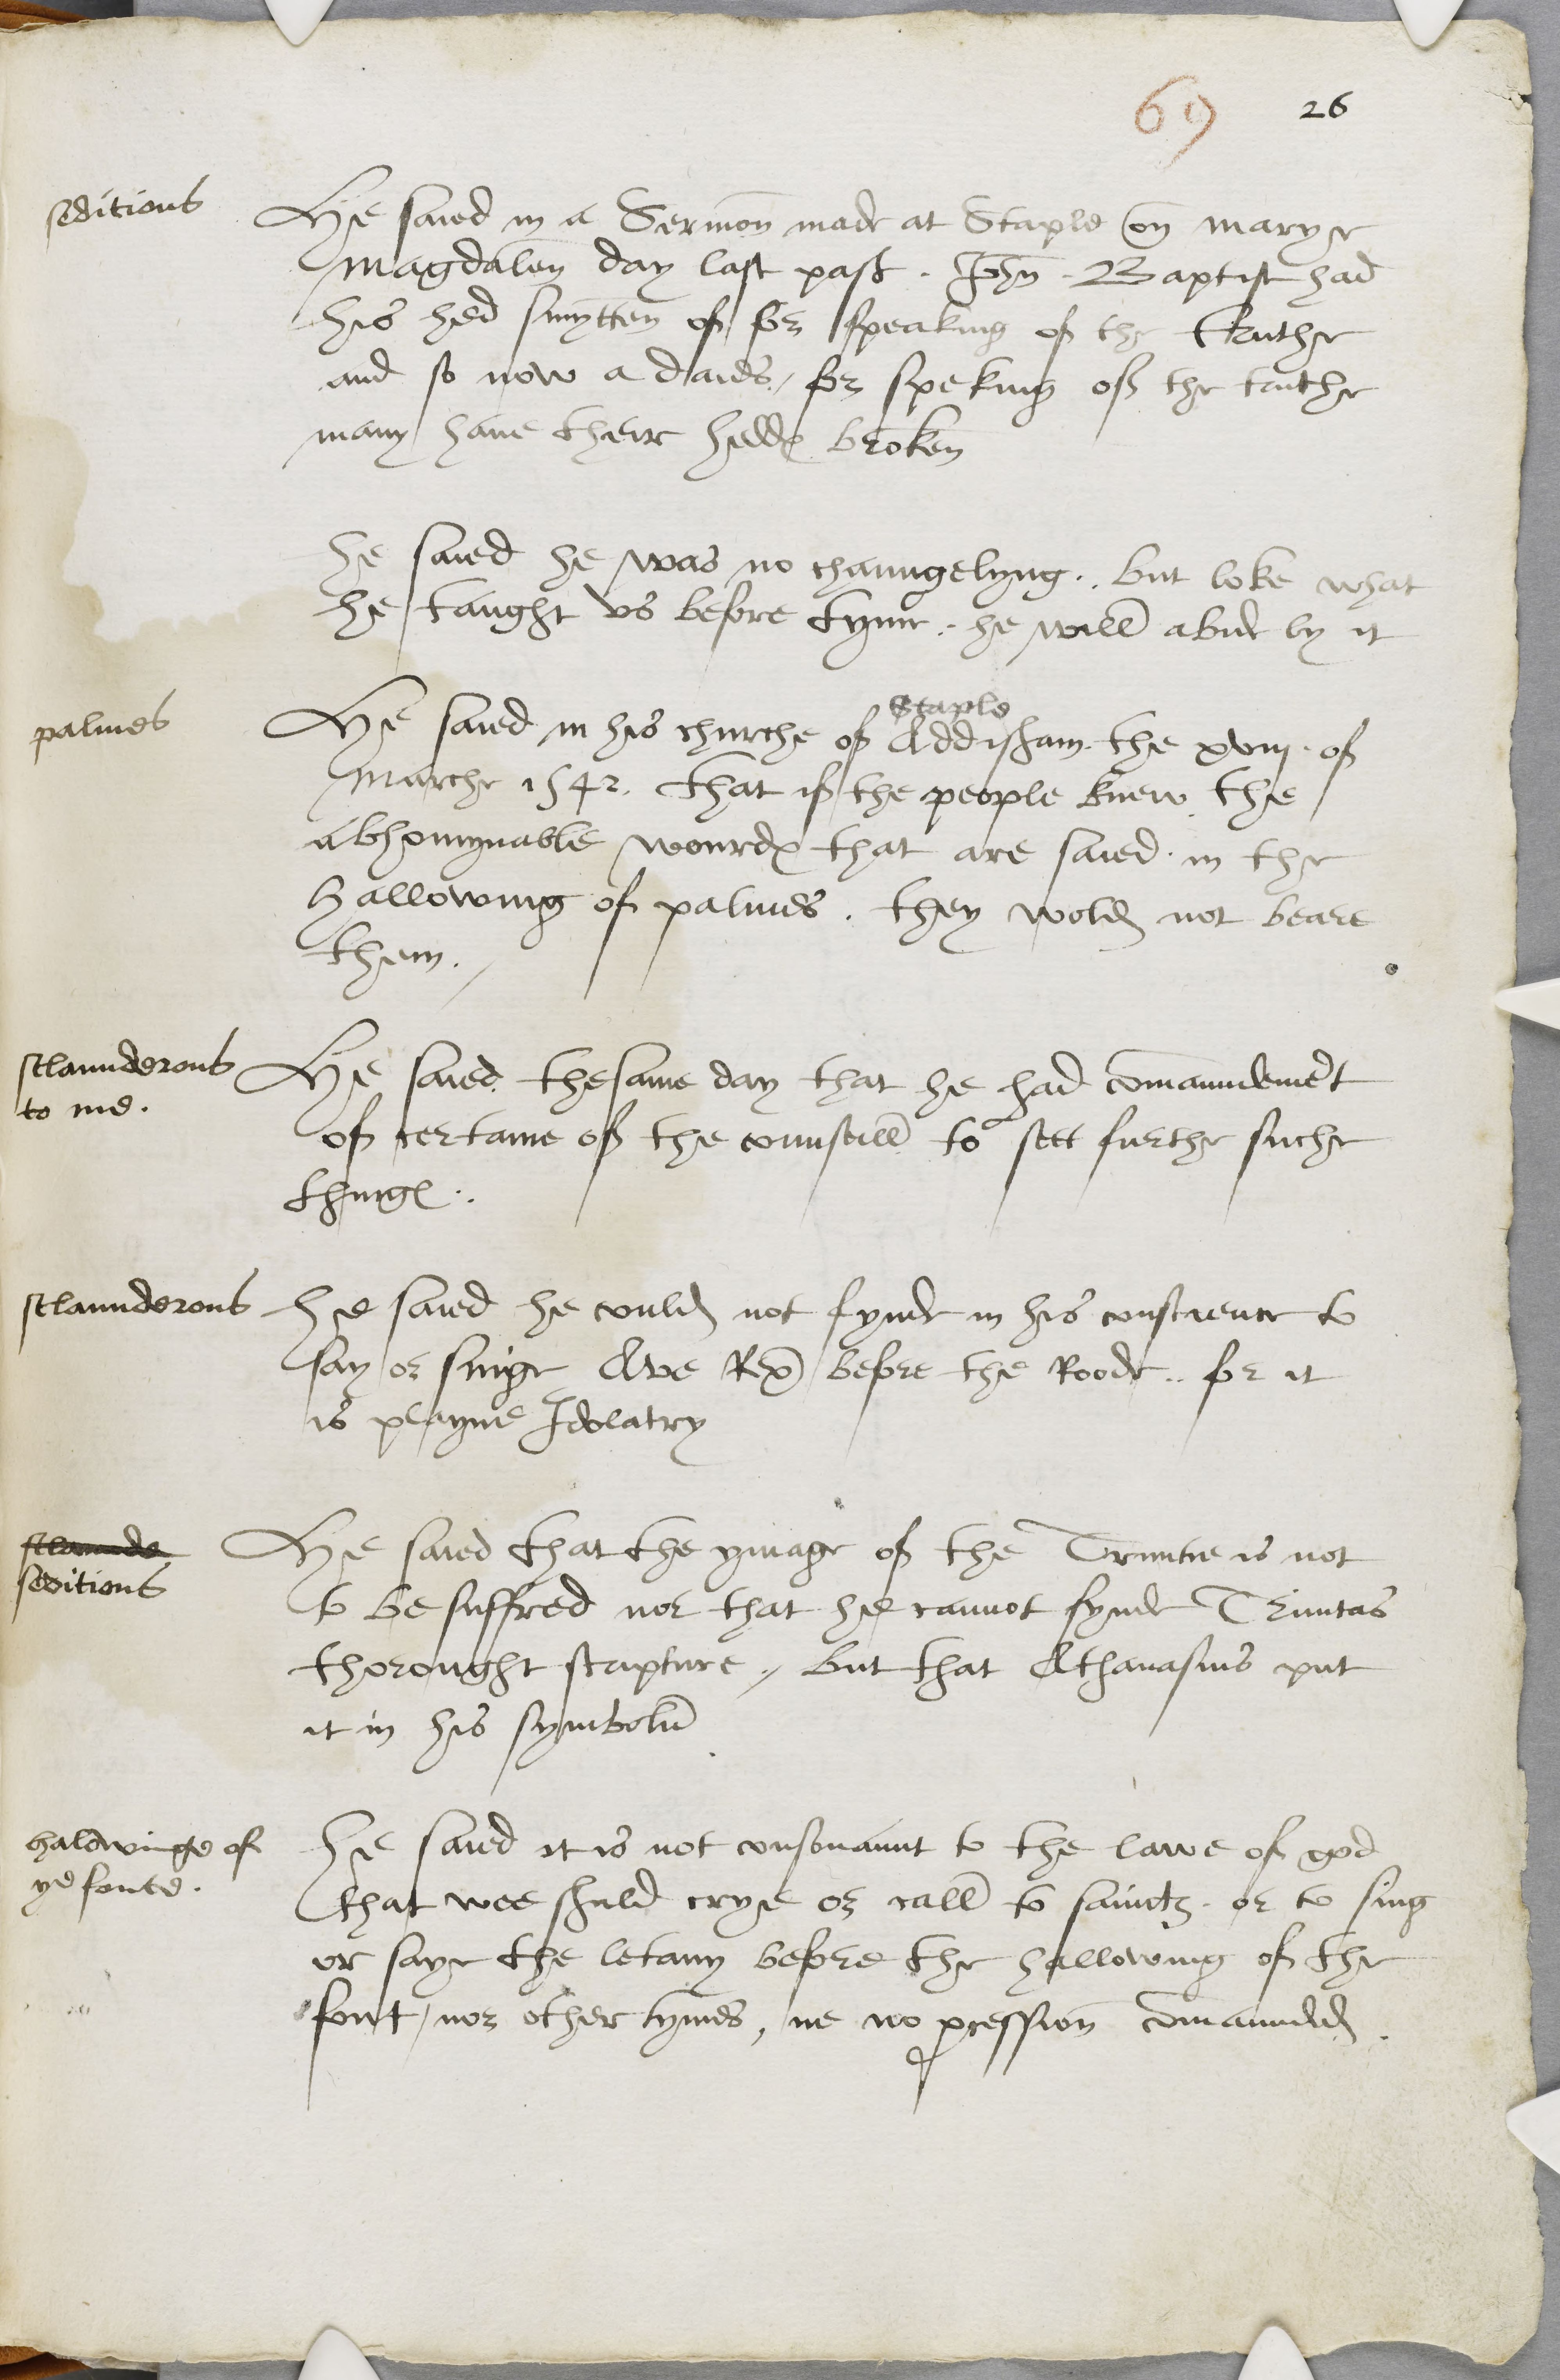 69 26
seditious
He saied in a Sermon made at Staple on marye
Magdalen day last past. Jhn Baptist had
his hed smytten of for speaking of the truthe
and so now a daies, for speking of the truthe
many have their hedds broken
he saied he was no chaungelyng. but loke what
he taught vs before tyme. he will abide by it
palmes
Staple
He saied in his churche of Addisham. the xviij. of
Marche 1542. that if the people knew the
abhomynable wourds that are saied in the
hallowing of palmes. they wold not beare
them.
sclaunderous
to me.
He saied thesame day that he had comaundemet
of certaine of the counseill to sett furthe suche
things.
sclaunderous
he saied he could not fynde in his conscience to
say or singe Ave Rex before the Roode. for it
is playne Idolatry
sclaunde
seditious
He saied that the ymage of the Trinitie is not
to be suffred nor that he cannot fynde Trinitas
thorought scripture, but that Athanasius put
it in his symbolu
halowinge of
ye fonte.
he saied it is not consonaunt to the lawe of god
that wee shuld crye or call to saincts. or to sing
or saye the letany before the hallowing of the
font, nor other tymes, ne no pcession comaunded.